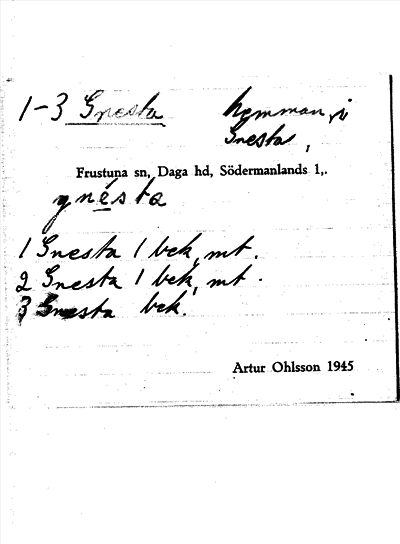 1-3 Gnesta hemman i
Gnesta,
Frustuna sn, Daga hd, Södermanlands l,.
gnésta
1 Gnesta 1 bek, mt.
2 Gnesta 1 bek, mt.
3 Gnesta bek.
Artur Ohlsson 1945